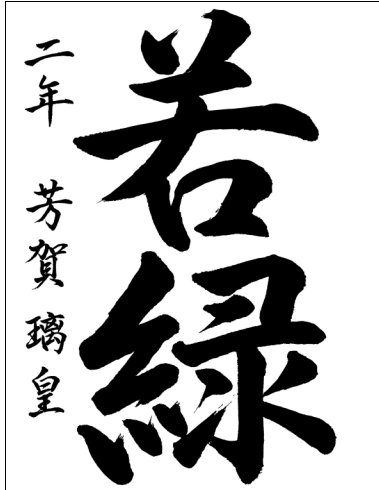 若緑
二年 芳賀璃皇